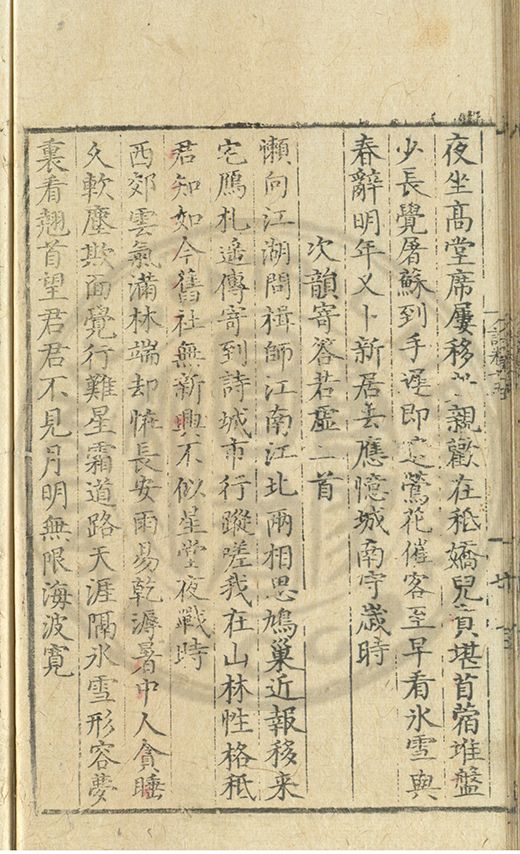 夜坐髙堂席屢移 親歡在秖嬌兒貧堪苜蓿堆盤
少長覺屠蘇到手遲即 鶯花催客至早看氷雪與
春辭明年又卜新居去應憶城南守歳時
次韻寄答若虛二首
懶向江湖問楫師江南江北兩相思鳩巢近報移来
宅鴈札遥傳寄到詩城市行蹤嗟我在山林性格秖
君知如今舊社無新興不似星堂夜戰時
西郊雲氣滿林端却恠長安雨易乾溽暑中人貪睡
久軟塵欺面覺行難星霜道路天涯隔氷雪形容夢
裏看翹首望君君不見月明無限海波寛